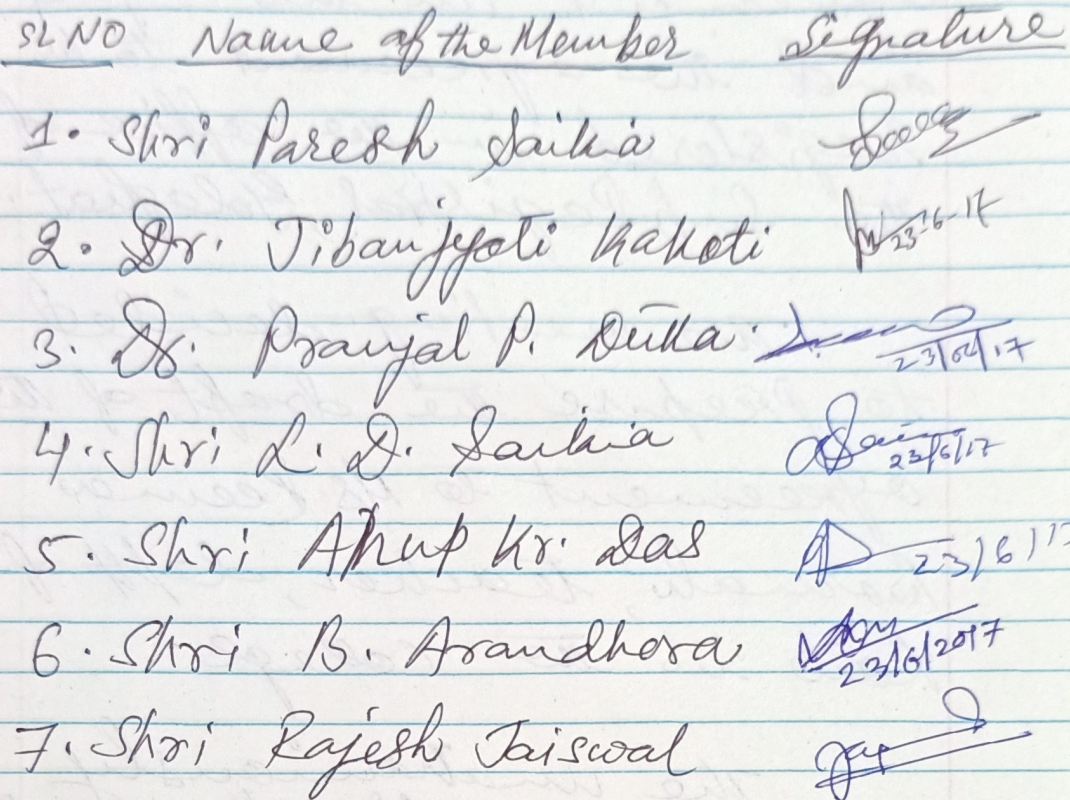 SL NO Name of the Member Signature
1. Shri Paresh Saikia
2. Dr. Jibanjyoti Kakoti 23-6-17
3. Dr. Pranjal P. Dutta 23/06/17
4. Shri L. D. Saikia 23/6/17
5. Shri Anup Kr. Das 23/6/17
6. Shri B. Arandhara 23/6/2017
7. Shri Rajesh Jaiswal